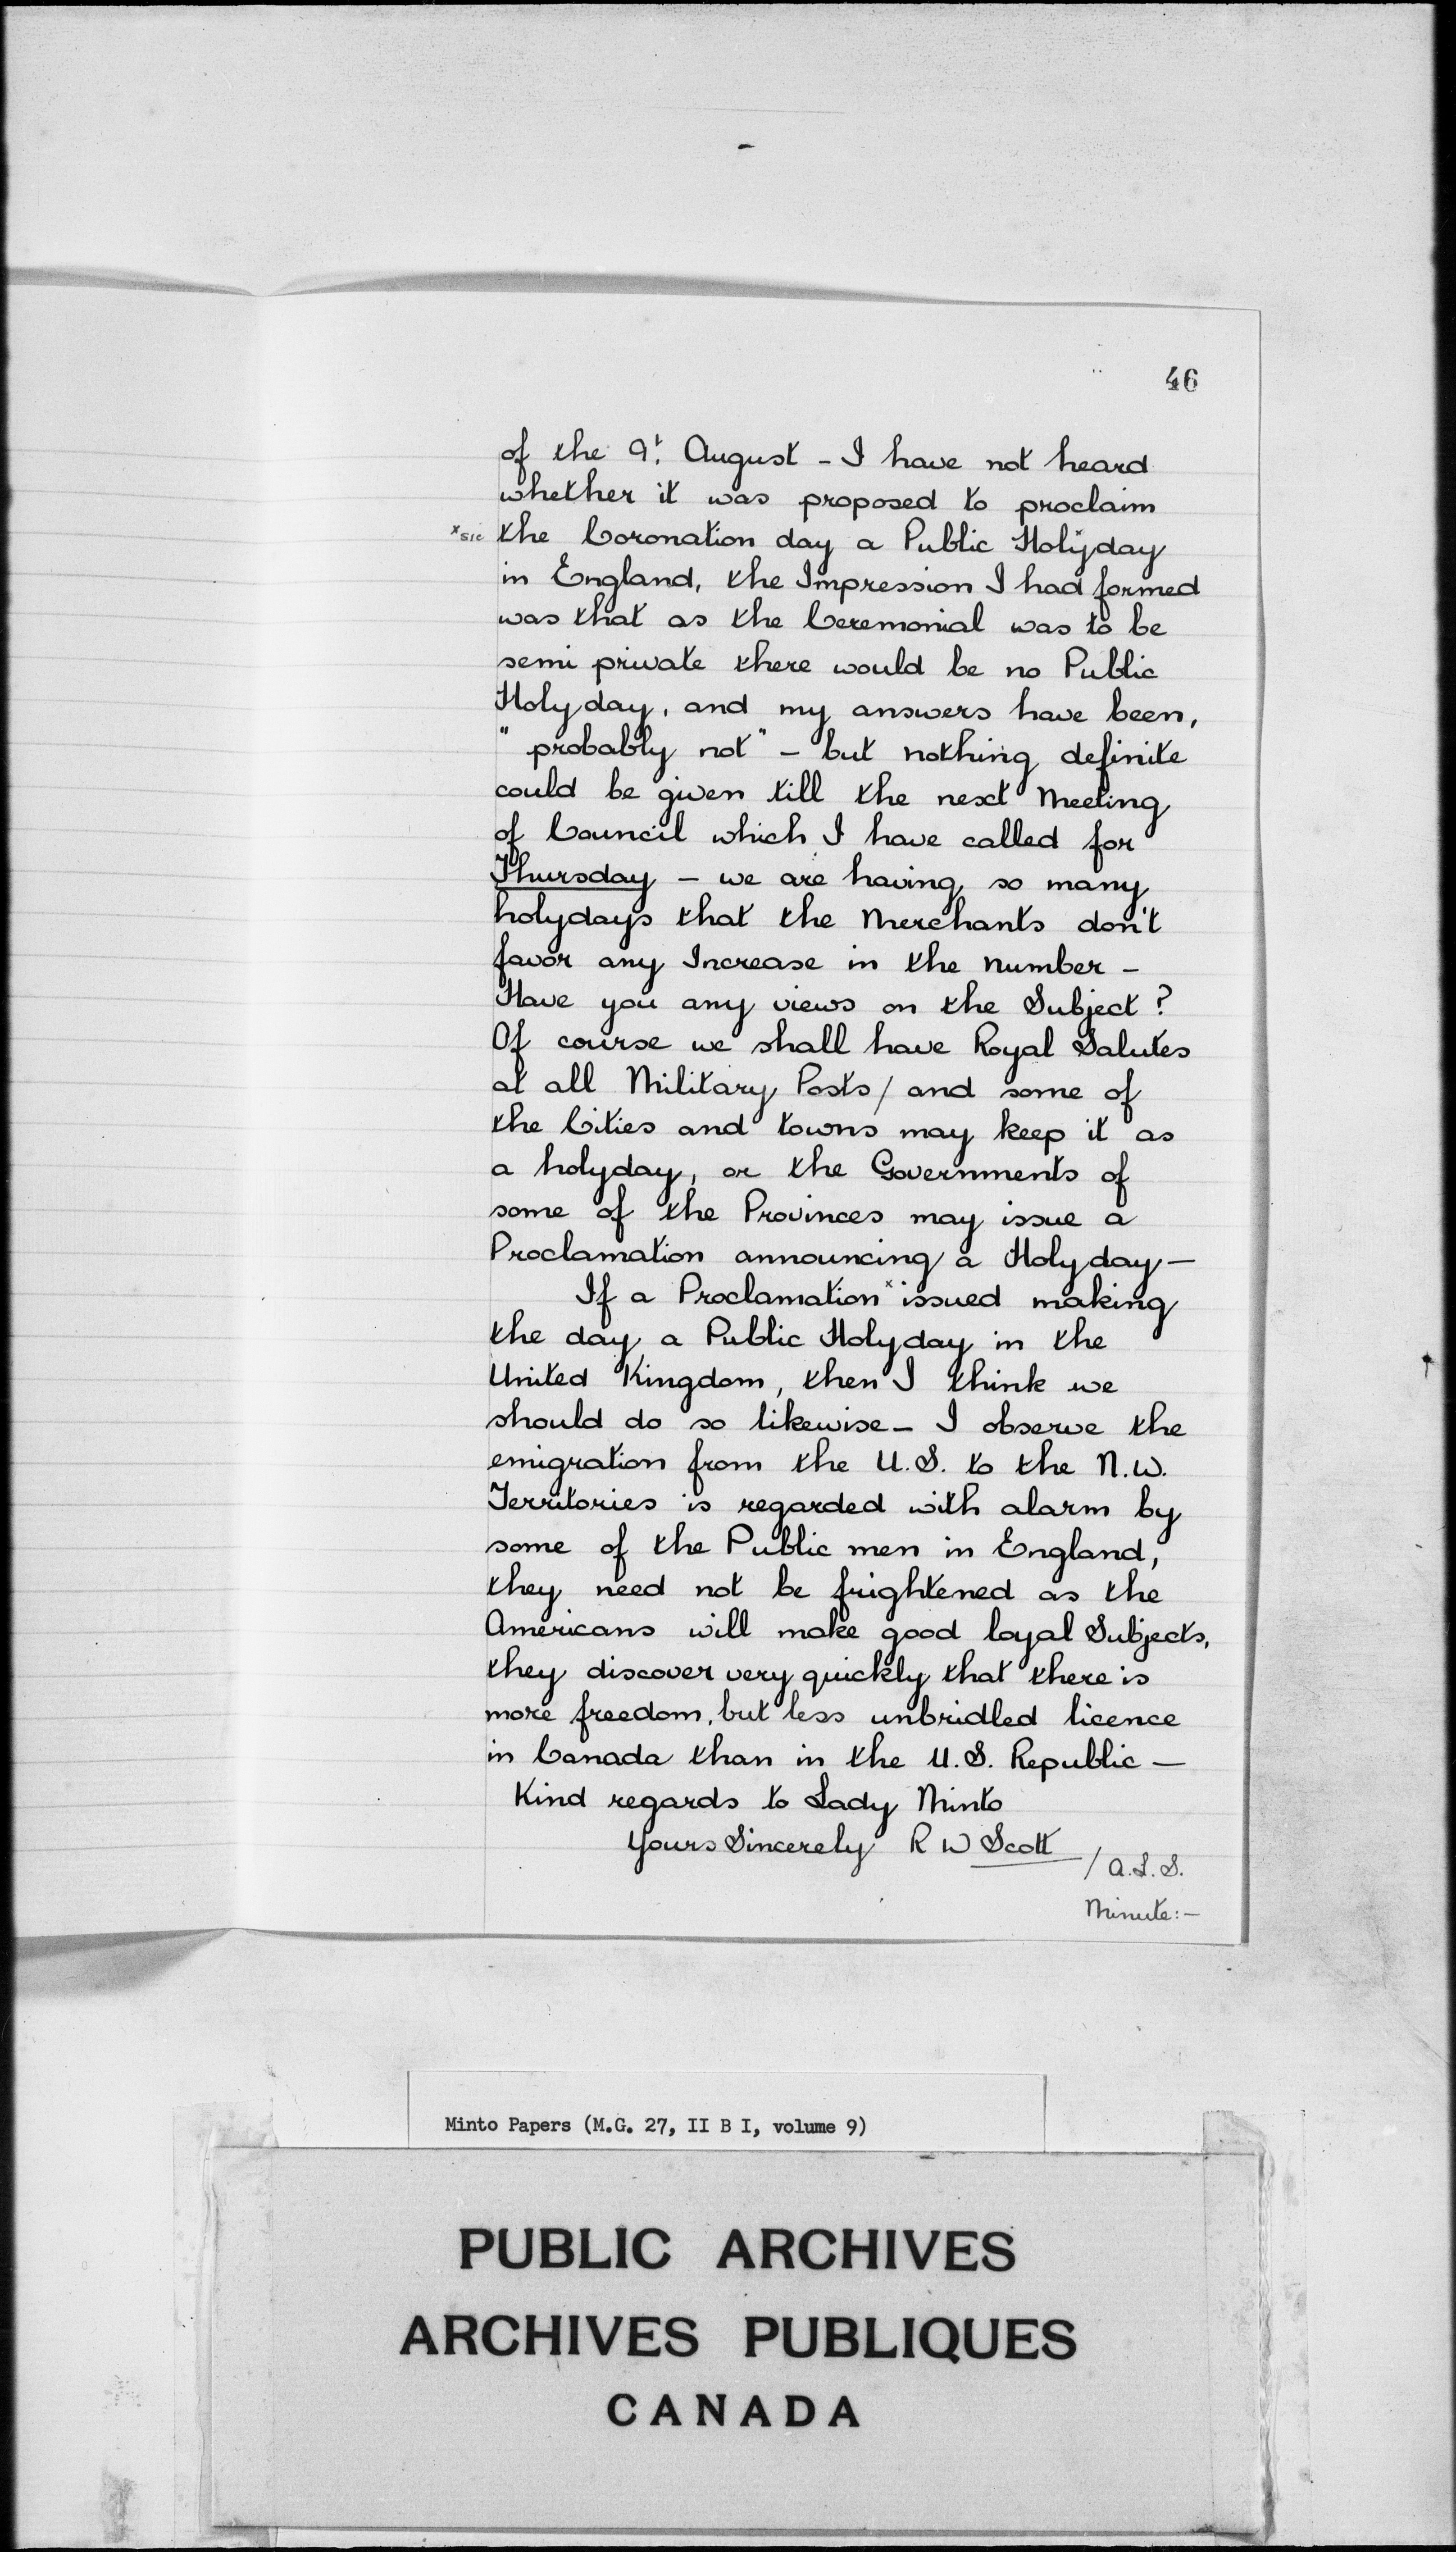 46
of the 9t. August - I have not heard
whether it was proposed to proclaim
x sic the Coronation day a Public Holyxday
in England, the Impression I had formed
was that as the Ceremonial was to be
semi private there would be no Public
Holyday, and my answers have been,
" probably not" - but nothing definite
could be given till the next Meeting
of Council which I have called for
Thursday - we are having so many
holydays that the Merchants don't
favor any Increase in the number -
Have you any views on the Subject?
Of course we shall have Royal Salutes
at all Military Posts / and some of
the Cities and towns may keep it as
a holyday, or the Governments of
some of the Provinces may issue a
Proclamation announcing a Holyday -
If a Proclamation x issued making
the day a Public Holyday in the
United Kingdom, then I think we
should do so likewise - I observe the
emigration from the U.S. to the N.W.
Territories is regarded with alarm by
some of the Public men in England,
they need not be frightened as the
Americans will make good loyal Subjects,
they discover very quickly that there is
more freedom, but less unbridled licence
in Canada than in the U.S. Republic -
Kind regards to Lady Minto
Yours Sincerely R W Scott
/ A.L.S.
Minute:-
Minto Papers (M.G. 27, II B I, volume 9)
PUBLIC ARCHIVES
ARCHIVES PUBLIQUES
CANADA